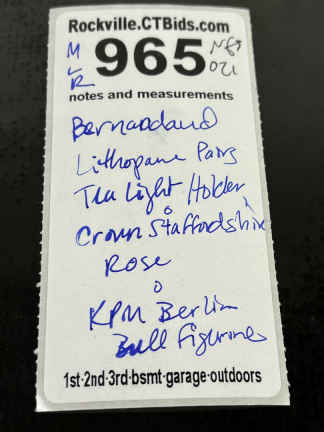 Rockville.CTBids.com
M
L
R
965
021
notes and measurements
Bernardaud
Lithopane Paris
Tea Light Holder
Crown Staffordshire
Rose
KPM Berlin
Bull Figurines
1st·2nd·3rd·bsmt·garage·outdoors